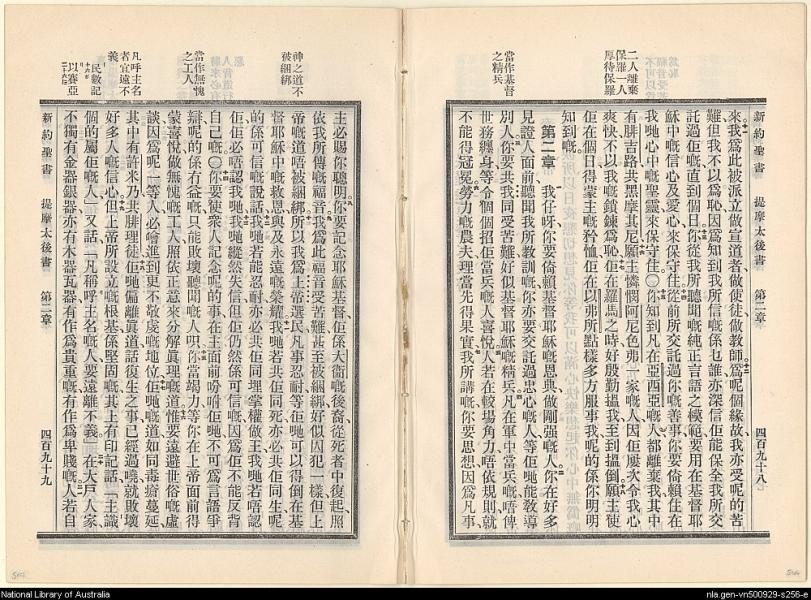 二人離棄
保羅一人
厚待保羅
當作基督
之精兵
新約聖書 提摩太後書 第二章 四百九十八
來我爲此被派立做宣道者做使徒做教師爲呢個緣故我亦受呢的苦
難但我不以爲恥因爲知到我所信嘅係乜誰亦深信佢能保全我所交
託過佢嘅直到個日你從我所聽聞嘅純正言語之模範要用在基督耶
穌中嘅信心及愛心來保守住從前所交託過你嘅善事你要倚賴住在
我哋心中嘅聖靈來保守住〇你知到凡在亞西亞嘅人都離棄我其中
有腓吉路共黑摩其尼願主憐憫阿尼色弗一家嘅人因佢屢次令我心
爽快不以我嘅鎖鍊爲恥佢在羅馬之時好殷勤搵我至到搵倒願主使
佢在個日得蒙主嘅矜恤佢在以弗所點樣多方服事我呢的係你明明
知到嘅
第二章 我仔呀你要倚賴基督耶穌嘅恩典做剛強嘅人你在好多
見證人面前聽聞我所教訓嘅你亦要交託過忠心嘅人等佢哋能教導
別人你要共我同受苦難好似基督耶穌嘅精兵凡在軍中當兵嘅唔俾
世務纏身等令個個招佢當兵嘅人喜悅人若在較場角力唔依規則就
不能得冠冕勞力嘅農夫理當先得果實我所講嘅你要思想因爲凡事
神之道不
被綑綁
當作無愧
之工人
凡呼主名
者宜遠不
義
民數記
以賽亞
主必賜你聰明你要記念耶穌基督佢係大衛嘅後裔從死者中復起照
依我所傳嘅福音我爲此福音受苦難甚至被綑綁好似囚犯一樣但上
帝嘅道唔被綑綁所以我爲上帝選民凡事忍耐等佢哋可以得倒在基
督耶穌中嘅救恩與及永遠嘅榮耀我哋若共佢同死亦必共佢同生呢
的係可信嘅說話我哋若能忍耐亦必共佢同埋掌權做王我哋若唔認
佢佢必唔認我哋我哋縱然失信但佢仍然係可信嘅因爲佢不能反背
自己嘅〇你要使衆人記念呢的事在主面前吩咐佢哋不可爲言語爭
辯呢的係冇益嘅只能敗壞聽聞嘅人唄你當竭力等你在上帝面前得
蒙喜悅做無愧嘅工人照依正意來分解眞理嘅道惟要遠避世俗嘅虛
談因爲呢一等人必噲進到更不敬虔嘅地位佢哋嘅道如同毒瘡蔓延
其中有許米乃共腓理徒佢哋偏離眞道話復生之事已經過曉就敗壞
好多人嘅信心但上帝所設立嘅根基係堅固嘅其上有印記話「主識
個的屬佢嘅人」又話「凡稱呼主名嘅人要遠離不義」在大戶人家
不獨有金器銀器亦有木器瓦器有作爲貴重嘅有作爲卑賤嘅人若自
新約聖書 提摩太後書 第二章 四百九十九
National Library of Australia
nla.gen-vn500929-s256-e